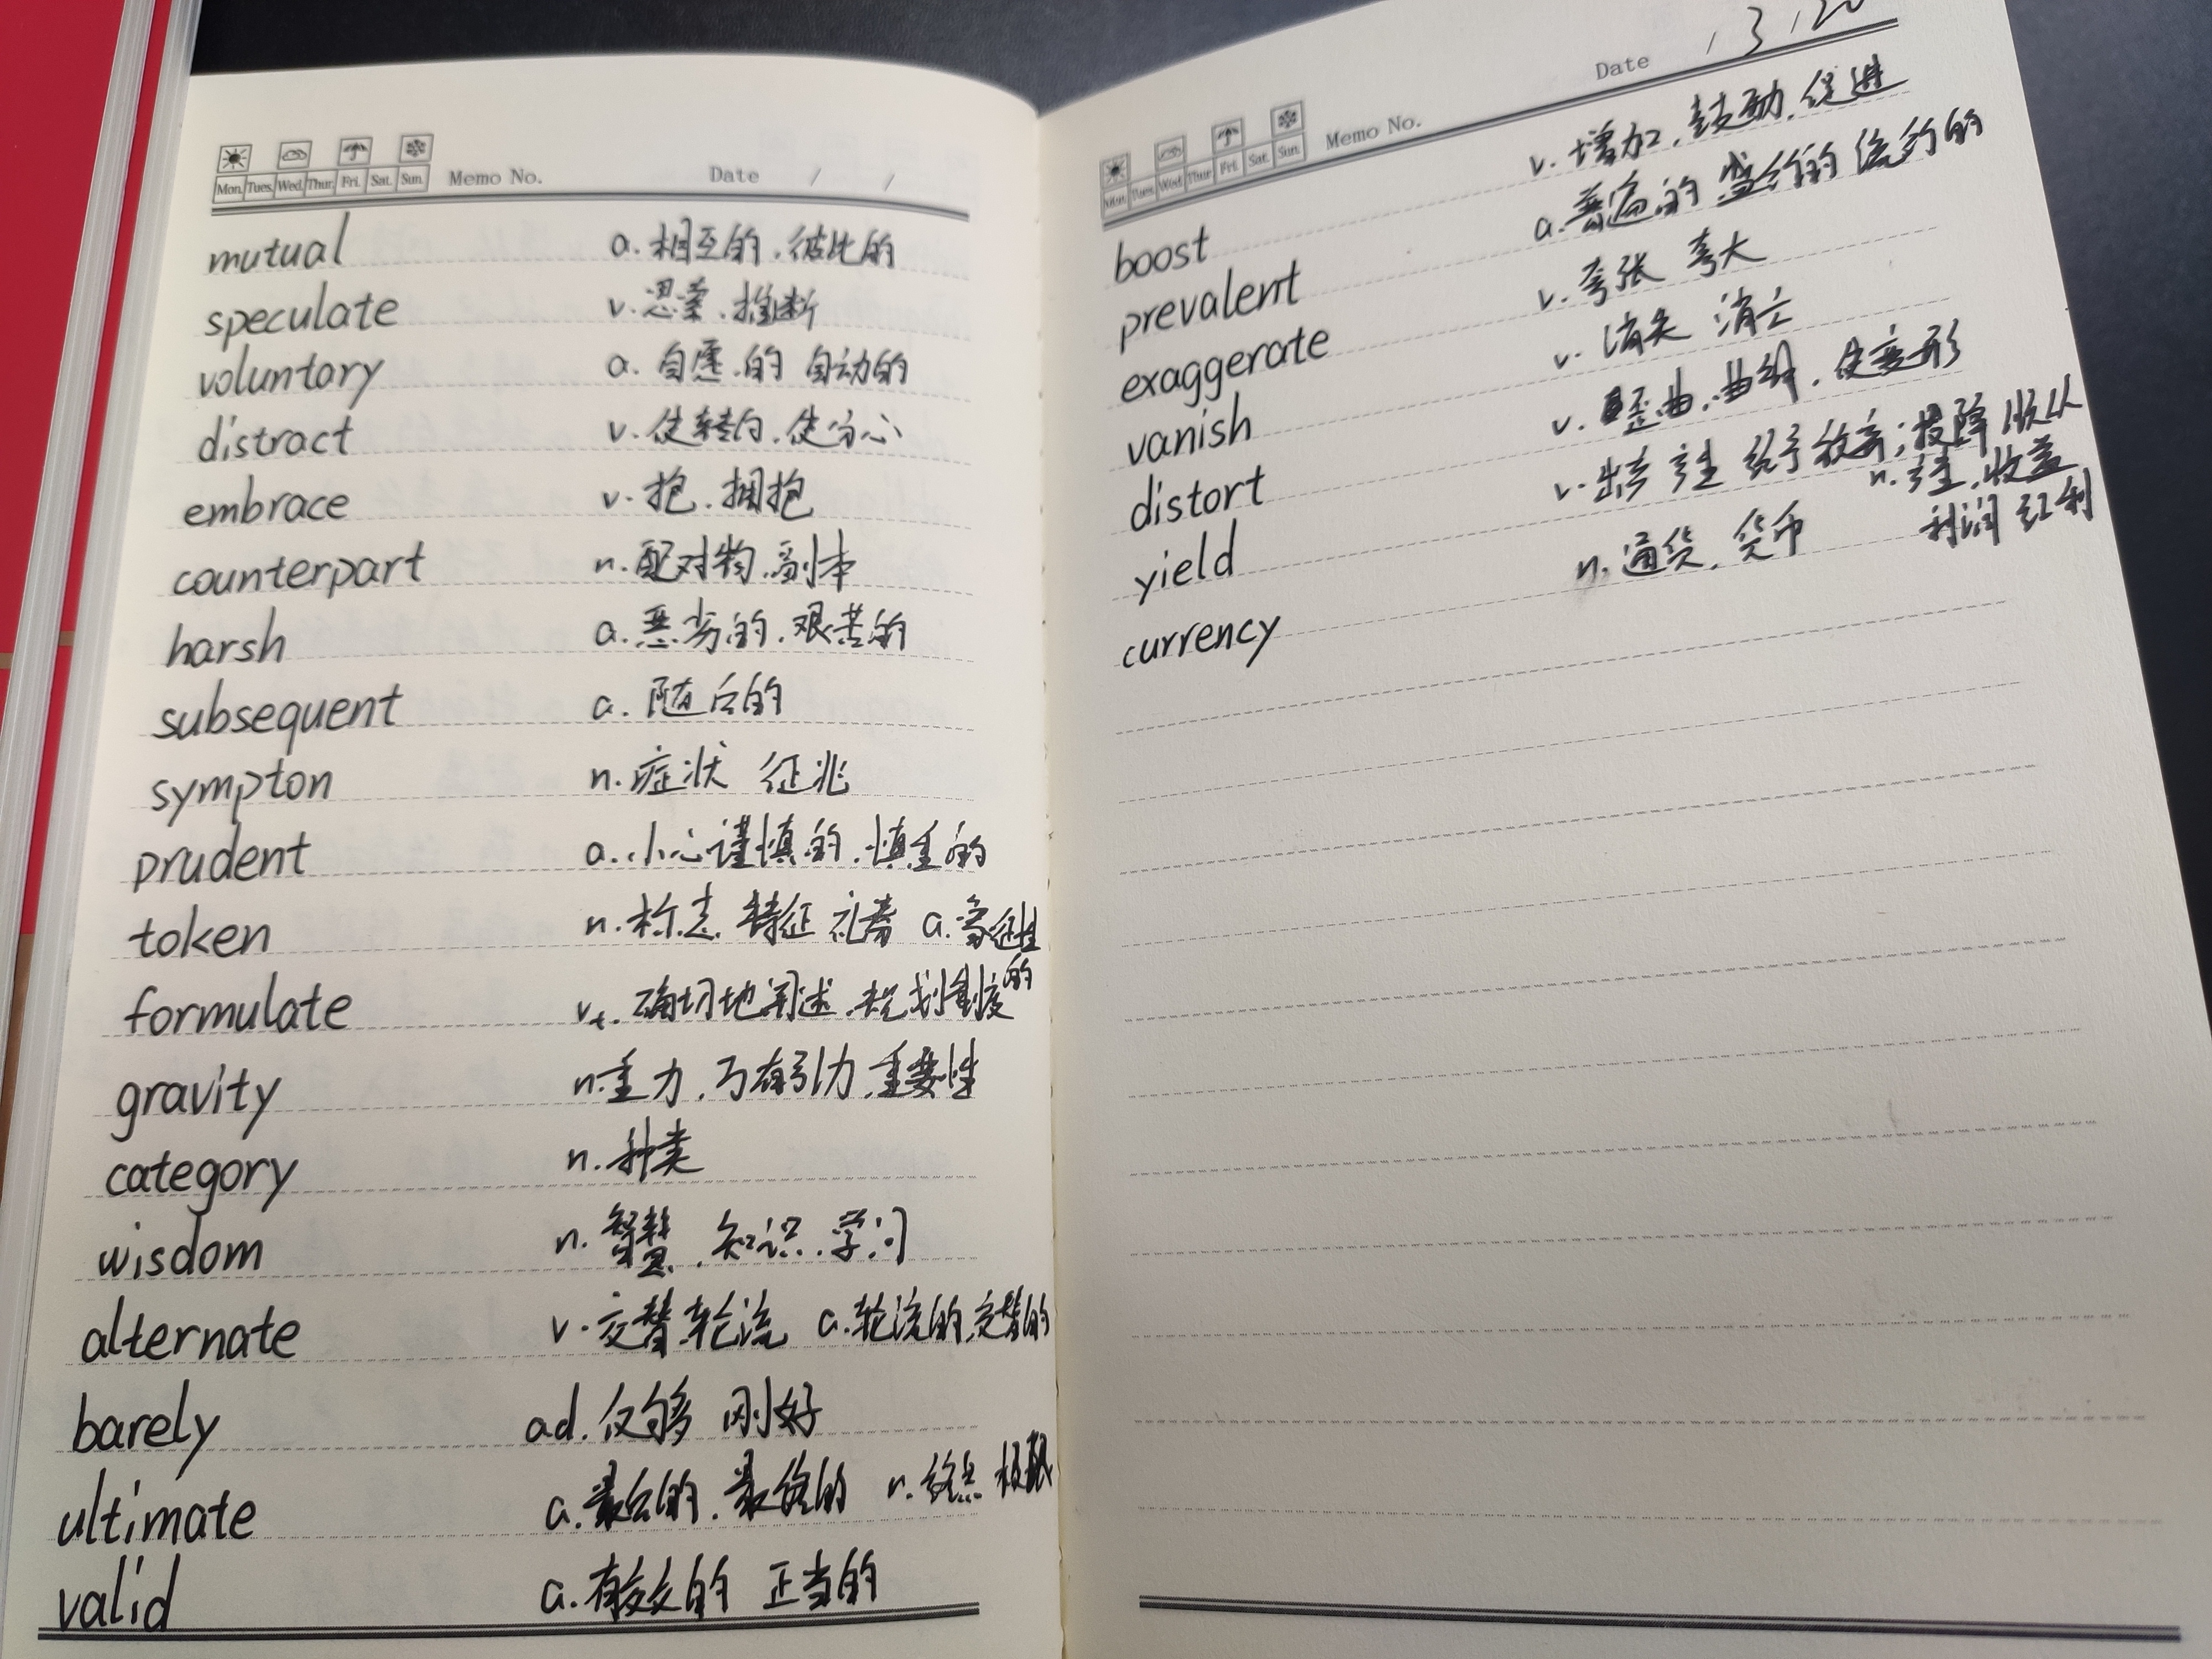 Mon. Tues. Wed. Thur. Fri. Sat. Sun. Memo No. Date / /
mutual a.相互的.彼此的
speculate v.思索.推断
voluntory a.自愿的 自动的
distract v.使转向.使分心
embrace v.抱.拥抱
counterpart n.配对物.副本
harsh a.恶劣的.艰苦的
subsequent a.随后的
sympton n.症状 征兆
prudent a.小心谨慎的.慎重的
token n.标志.特征 礼券 a.象征性的
formulate vt.确切地阐述.规划制度
gravity n.重力.万有引力.重要性
category n.种类
wisdom n.智慧.知识.学问
alternate v.交替轮流 a.轮流的.交替的
barely ad.仅够 刚好
ultimate a.最后的.最终的 n.终点
valid a.有效的 正当的
Mon. Tues. Wed. Thur. Fri. Sat. Sun. Memo No. Date / 3
boost v.增加.鼓励.促进
prevalent a.普遍的 盛行的 流行的
exaggerate v.夸张 夸大
vanish v.消失 消亡
distort v.歪曲.曲解.使变形
yield v.出产 产生 给予 放弃;投降 收入
n.产量.收益
利润 红利
currency n.通货.货币